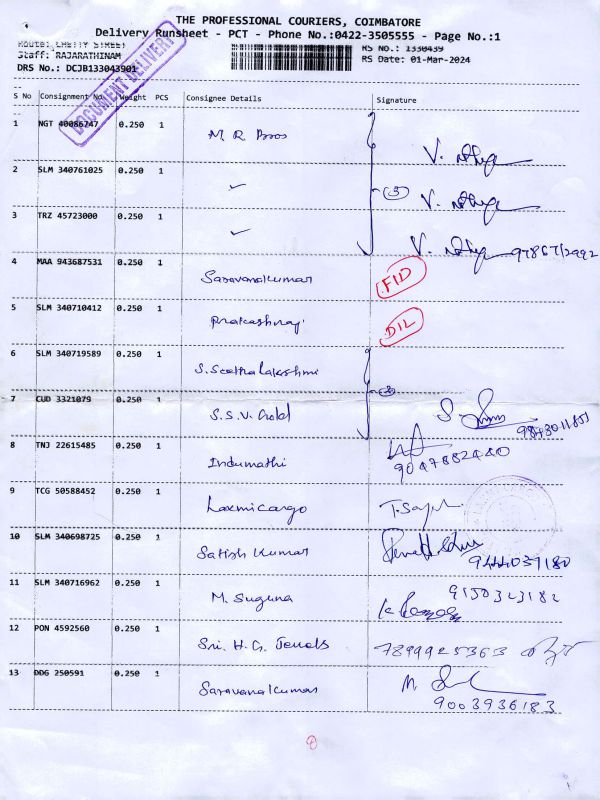 THE PROFESSIONAL COURIERS, COIMBATORE
Delivery Runsheet - PCT - Phone No.:0422-3505555 - Page No.:1
Route: CHETTY STREET
RS No.: 1330439
Staff: RAJARATHINAM
RS Date: 01-Mar-2024
DRS No.: DCJB133043901
DOCUMENT DELIVERY
S No Consignment No. Weight PCS Consignee Details Signature
1 NGT 40086747 0.250 1 M R Bros
2 SLM 340761025 0.250 1 (3)
3 TRZ 45723000 0.250 1
4 MAA 943687531 0.250 1 Saravanakumar FID
5 SLM 340710412 0.250 1 Prakashraj DIL
6 SLM 340719589 0.250 1 S. Seethalakshmi
7 CUD 3321079 0.250 1 S.S.V. Gold
8 TNJ 22615485 0.250 1 Indumathi
9047882440
9 TCG 50588452 0.250 1 Laxmicargo
10 SLM 340698725 0.250 1 Satish Kumar
9444037180
11 SLM 340716962 0.250 1 M. Suguna 9150323182
12 PON 4592560 0.250 1 Sri. H.G. 7899925363
13 DDG 250591 0.250 1 Saravanakumar
9003936183